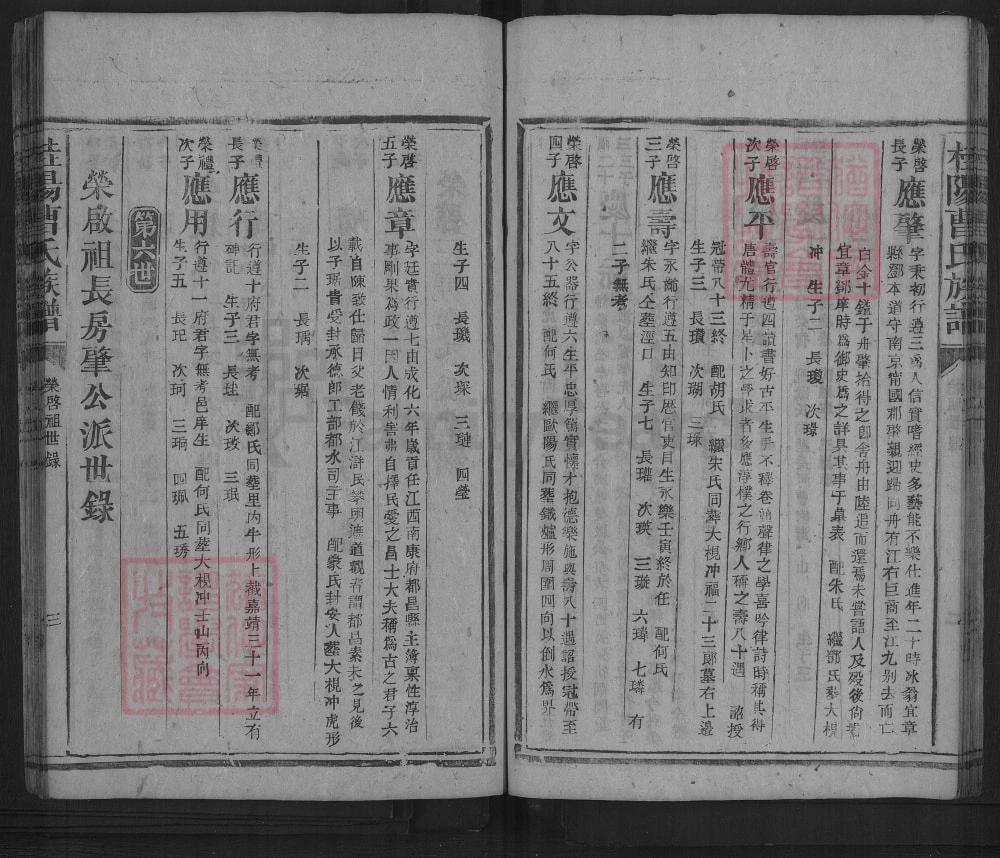 桂陽曹氏族譜
榮啓長子 應肇 字秉初行遵三爲人信實嗜經史多藝能不樂仕進年二十時冰翁宜章
縣鄧本道守南京甯國郡肇親迎歸同舟有江右巨商至江九別去而亡
白金十鎰于舟肇拾得之卽舍舟由陸追而還焉未嘗語人及殁後尙書
宜章鄧庠時爲御史爲之詳其事于墓表 配朱氏 繼鄧氏塟大梘
冲 生子二 長瓊 次璟
榮啓次子 應平 壽官行遵四讀書好古平生手不釋卷通聲律之學喜吟律詩時稱其得
唐體尤精于星卜之學求者多應淳樸之行鄉人稱之壽八十遇 詔授
冠帶八十三終 配胡氏 繼宋氏同葬大梘冲福二十三郞墓右上邊
生子三 長瓚 次瑚 三瑑
榮啓三子 應壽 字永齡行遵五由知印歷官吏目生永樂壬寅終於任 配何氏
繼朱氏仝塟涇口 生子七 長瓘 次瑛 三璇 六瑋 七璘 有
二子無考
榮啓四子 應文 字公器行遵六生平忠厚篤實懷才抱德樂施與壽八十遇詔授冠帶至
八十五終 配何氏 繼歐陽氏同塟鐵爐形周圍四向以倒水爲界
生子四 長璣 次琛 三璉 四瑩
榮啓五子 應章 字廷實行遵七由成化六年歲貢任江西南康府都昌縣主簿稟性淳治
事剛果爲政一因人情利害弗自擇民愛之昌士大夫稱爲古之君子六
載自陳致仕歸日父老餞於江滸民攀輿漁道觀者謂都昌素未之見後
以子琚貴受封承德郎工部都水司主事 配袁氏封安人塟大梘冲虎形
生子二 長瑀 次琚
榮禮長子 應行 行遵十府君字無考 配鄭氏同塟里内牛形上截嘉靖三十一年立有
碑記 生子三 長珪 次玫 三珉
榮禮次子 應用 行遵十一府君字無考邑庠生 配何氏同塟大梘冲壬山丙向
生子五 長玘 次珂 三珦 四珮 五琇
第六世
榮啟祖長房肇公派世錄
桂陽曹氏族譜
榮啓祖世錄
三